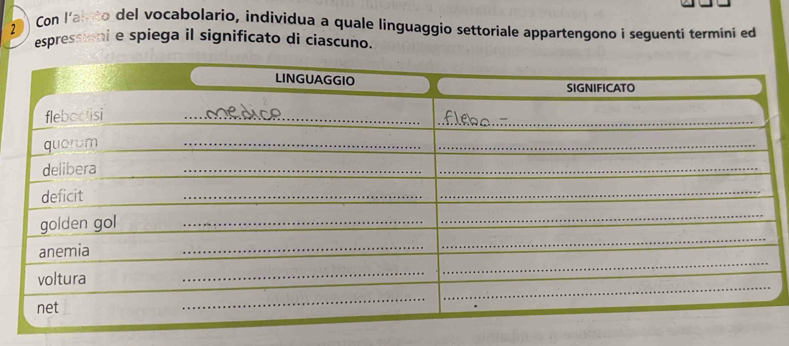 2 Con l'aiuto del vocabolario, individua a quale linguaggio settoriale appartengono i seguenti termini ed
espressioni e spiega il significato di ciascuno.
LINGUAGGIO SIGNIFICATO
fleboclisi medico flebo -
quorum
delibera
deficit
golden gol
anemia
voltura
net